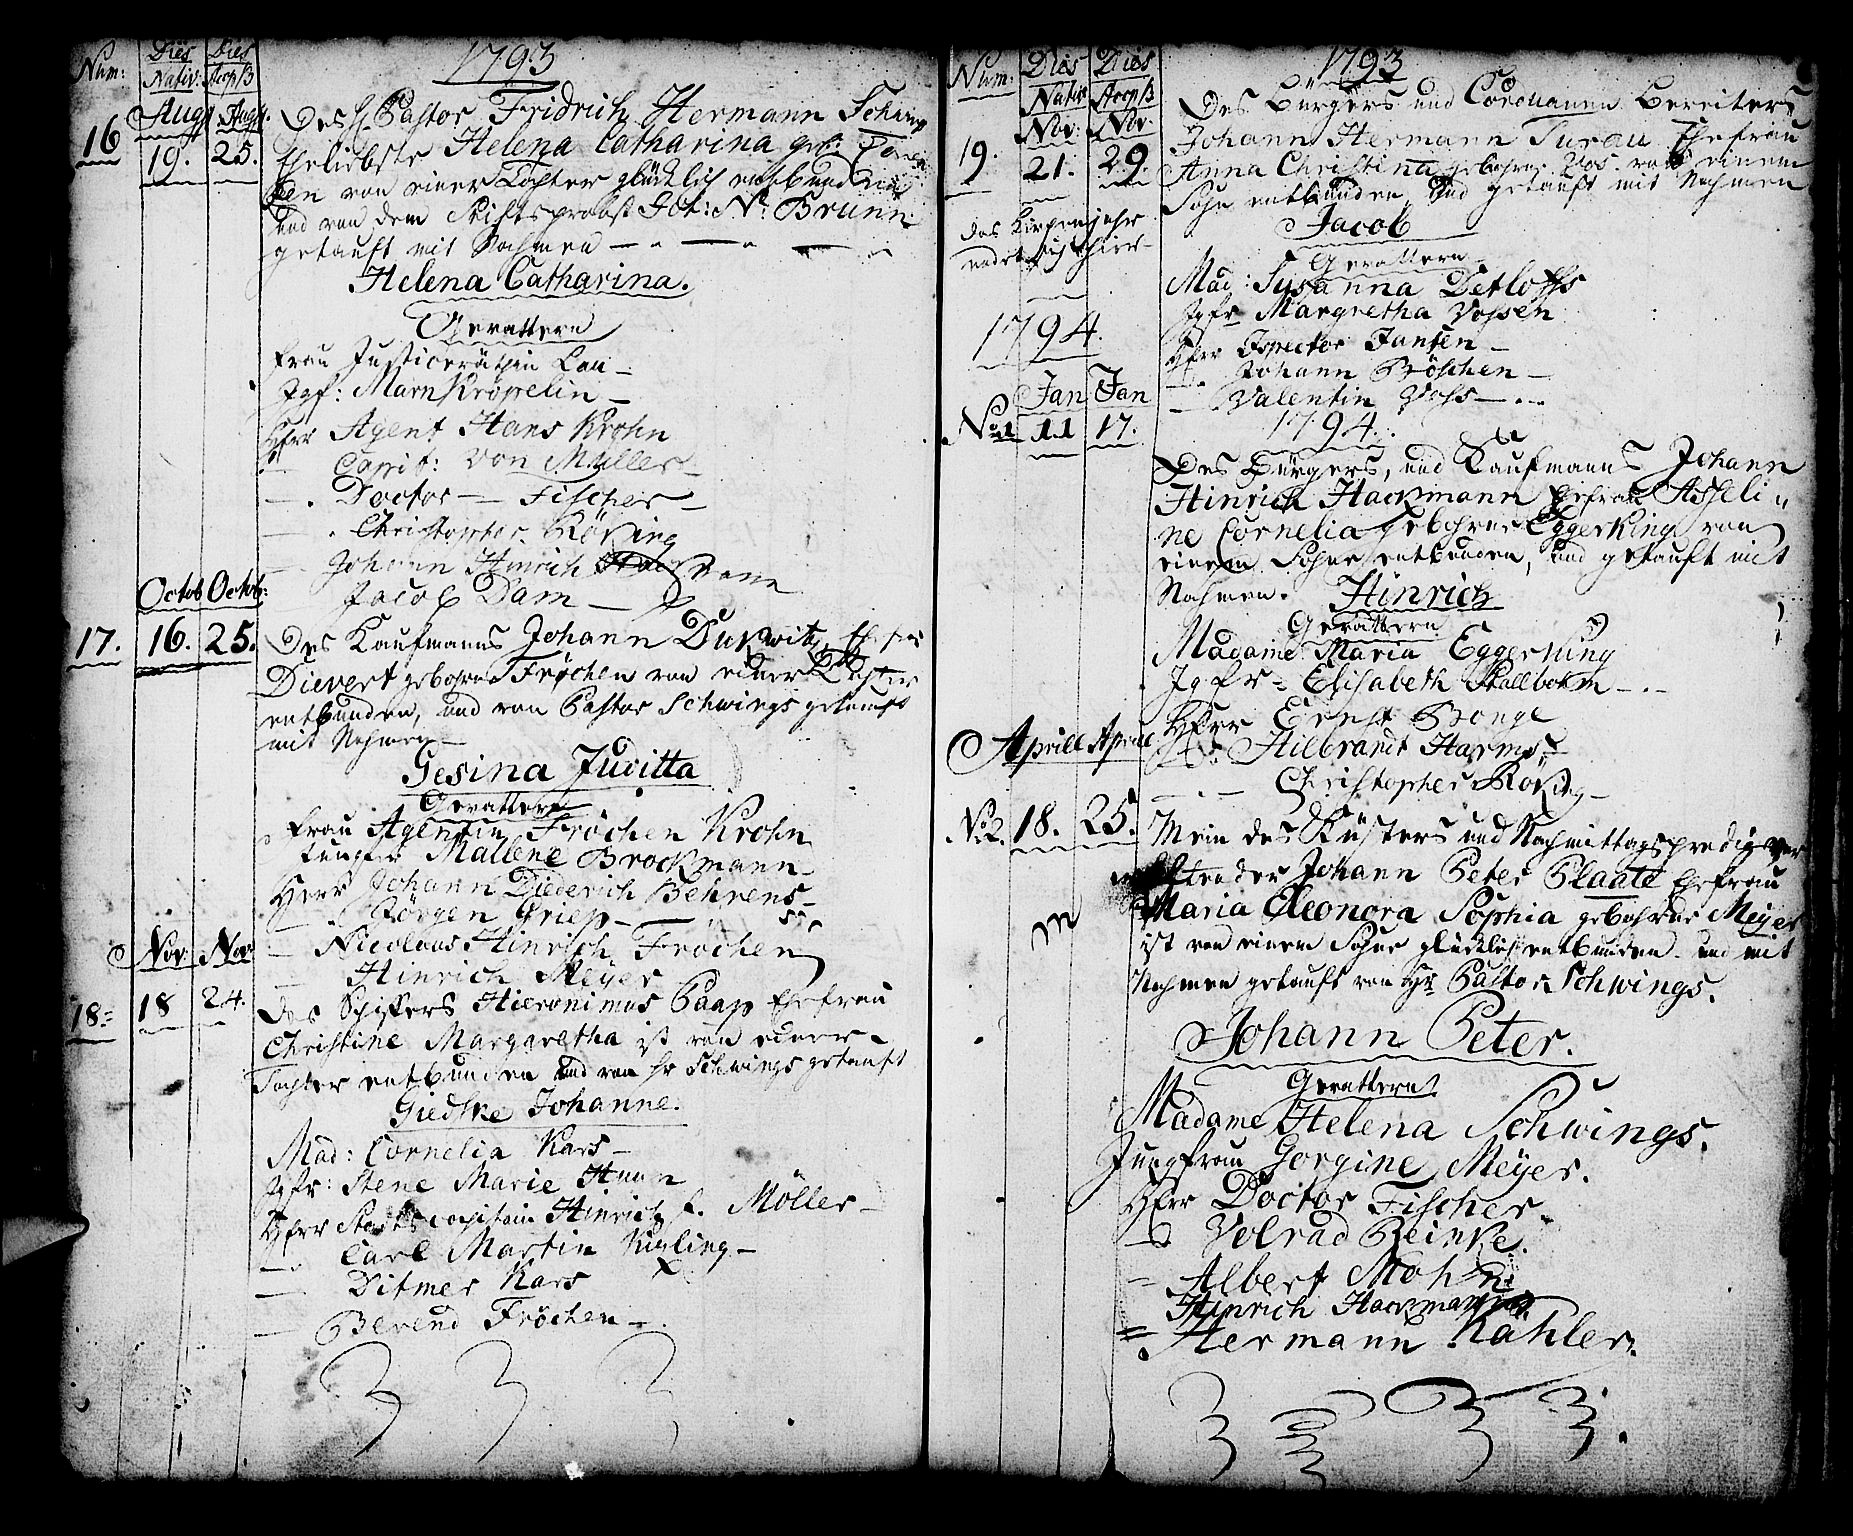 Num: Dies Nativ: Dies
1793
16 Aug. 19. Aug. 25.
Des H. Pastor Fridrich Hermann
Eheliebste Helena Catharina geb:
von einer Tochter glücklich entbunden
und von dem Stiftsprobst Joh: N: Brunn
getauft mit Nahmen
Helena Catharina.
Gevattern
Frau Justicerähtin Lau
Jgf: Marn Kröpelin
Herr Agent Hans Krohn
Capit: von Müller
Doctor Fischer
Christopher Röking
Johann Hinrich
Jacob Dam
Octob Octob:
17. 16. 25.
Des Kaufmanns Johann Dukwitz
Dievert gebohrne Fröchen von einer Tochter
entbunden, und von Pastor Schwings getauft
mit Nahmen
Gesina Juditta
Gevattern
Frau Agentin Fröchen Krohn
Jungfer Mallene Brockmann
Herr Johann Diederich Behrens
Jörgen Griep
Nicolaus Hinrich Fröchen
Hinrich Meyer
Nov. Nov.
18 18 24.
Des Schiffers Hieronimus Paap Ehefrau
Christine Margaretha ist von einer
Tochter entbunden und von Hr Schwings getauft
Giedske Johanne.
Mad: Cornelia Kars
Jgfr: Stene Marie
Herr Stadtscapitain Hinrich f. Möller
Carl Martin Kipling
Ditmer Kars
Berend Fröchen
Num. Dies Nativ Dies
1793
Nov: Nov.
19. 21. 29.
Des Bürgers und Bereiters
Johann Hermann Turau Ehefrau
Anna Christina gebohrne Vos von einem
Sohn entbunden und getauft mit Nahmen
Jacob
das Kirchenjahr
endet sich hier
Gevattern
Mad: Susanna Detloffs
Jgfr Margretha Vossen
Herr Inspector Jansen
Johann Böschen
Valentin Vohs
1794.
Jan Jan
1794.
No 1 11 17.
Des Bürgers, und Kaufmanns Johann
Hinrich Hackmann Ehefrau Asseli
ne Cornelia gebohrne Eggerking von
einem Sohne entbunden, und getauft mit
Nahmen. Hinrich
Gevattern
Madame Maria Eggerking
Jgfr Elisabeth Stallbohm
Herr Ernst Bonge
Hilbrandt Harms
Christopher Röking
Aprill Aprill
No 2. 18. 25.
Mein des Küsters und Nachmittagsprediger
Johann Peter Plaate Ehefrau
Maria Eleonora Sophia gebohrne Meyer
ist von einem Sohne glücklich entbunden und mit
Nahmen getauft von Hr Pastor Schwings.
Johann Peter.
Gevattern
Madame Helena Schwings.
Jungfrau Gorgine Meyer.
Herr Doctor Fischer
Volrad Reinke.
Albert Mohr
Hinrich Hackmann
Hermann Kähler.